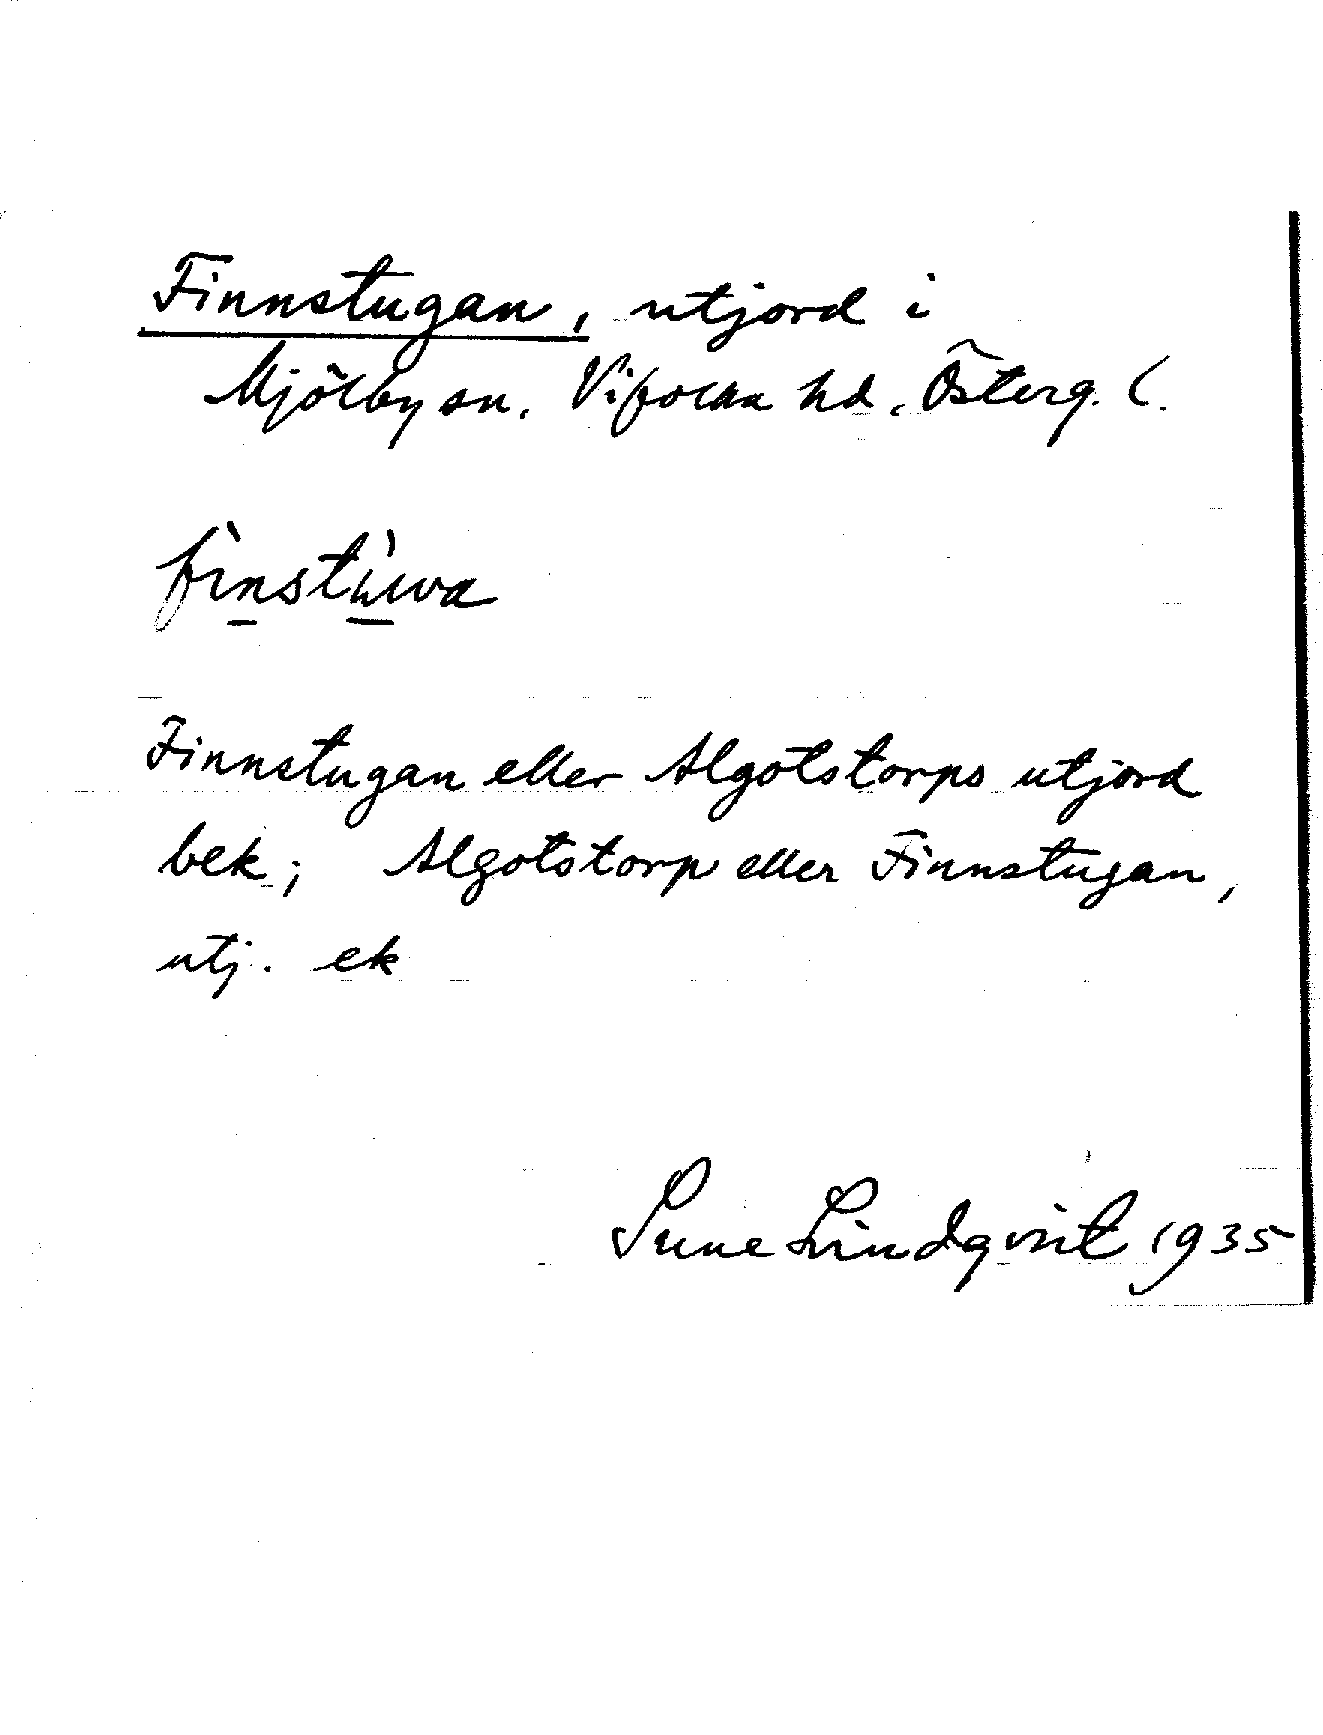 Finnstugan, utjord i
Mjölby sn. Vifolka hd, Österg. l.
fìnstùwa
Finnstugan eller Algotstorps utjord
bek; Algotstorp eller Finnstugan,
utj. ek
Sune Lindqvist 1935